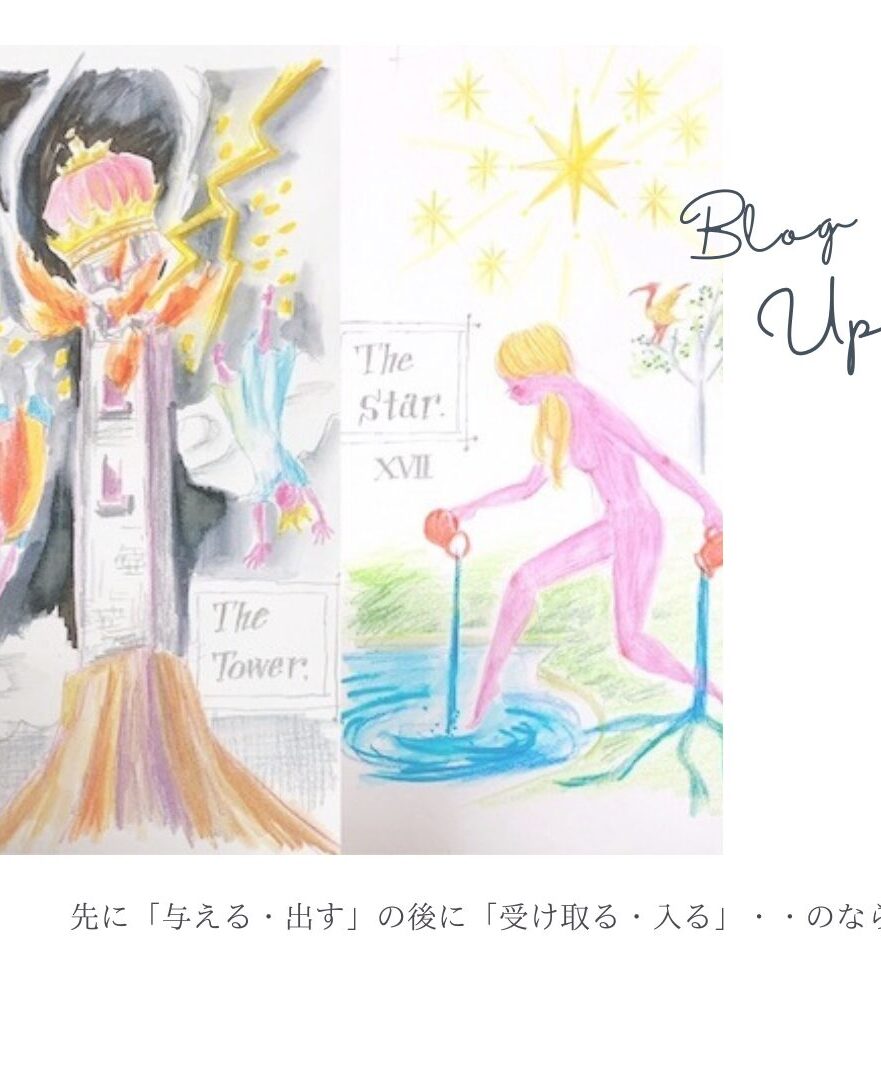 Blog
Up
The
Star.
XVII
The
Tower.
先に「与える・出す」の後に「受け取る・入る」・・のなら